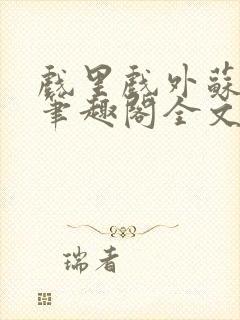 戲里戲外蘇
筆趣閣全文
瑞者